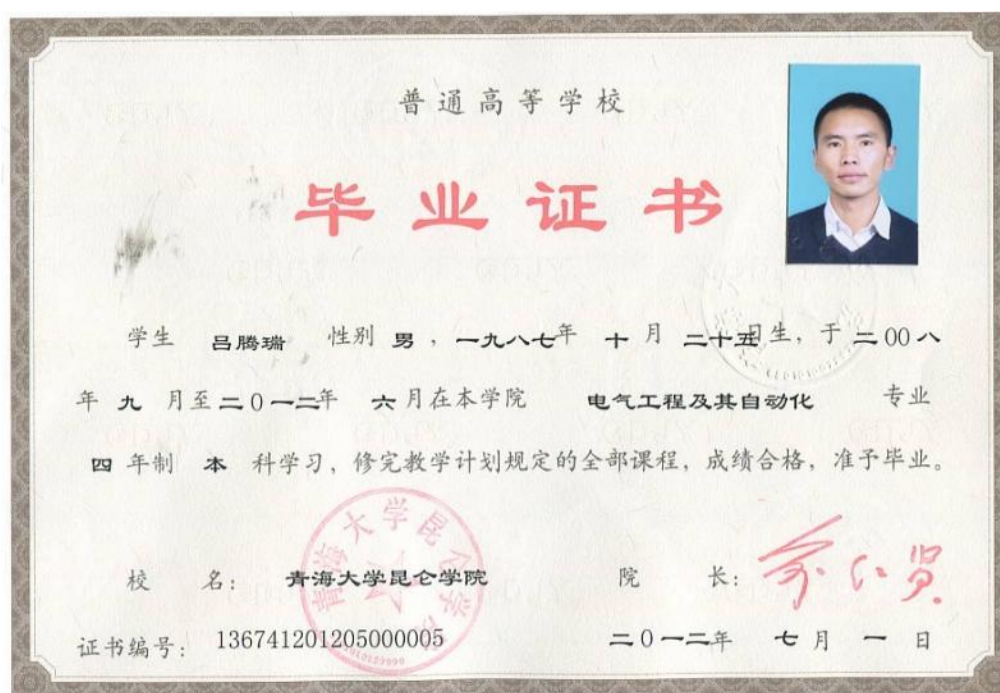 普通高等学校
毕业证书
学生 吕腾瑞 性别 男，一九八七年 十 月 二十五日生，于 二00八
年 九 月至二0一二年 六 月在本学院 电气工程及其自动化 专业
四 年制 本 科学习，修完教学计划规定的全部课程，成绩合格，准予毕业。
校 名： 青海大学昆仑学院 院 长：
证书编号： 136741201205000005 二0一二年 七 月 一 日
青海大学昆仑学院